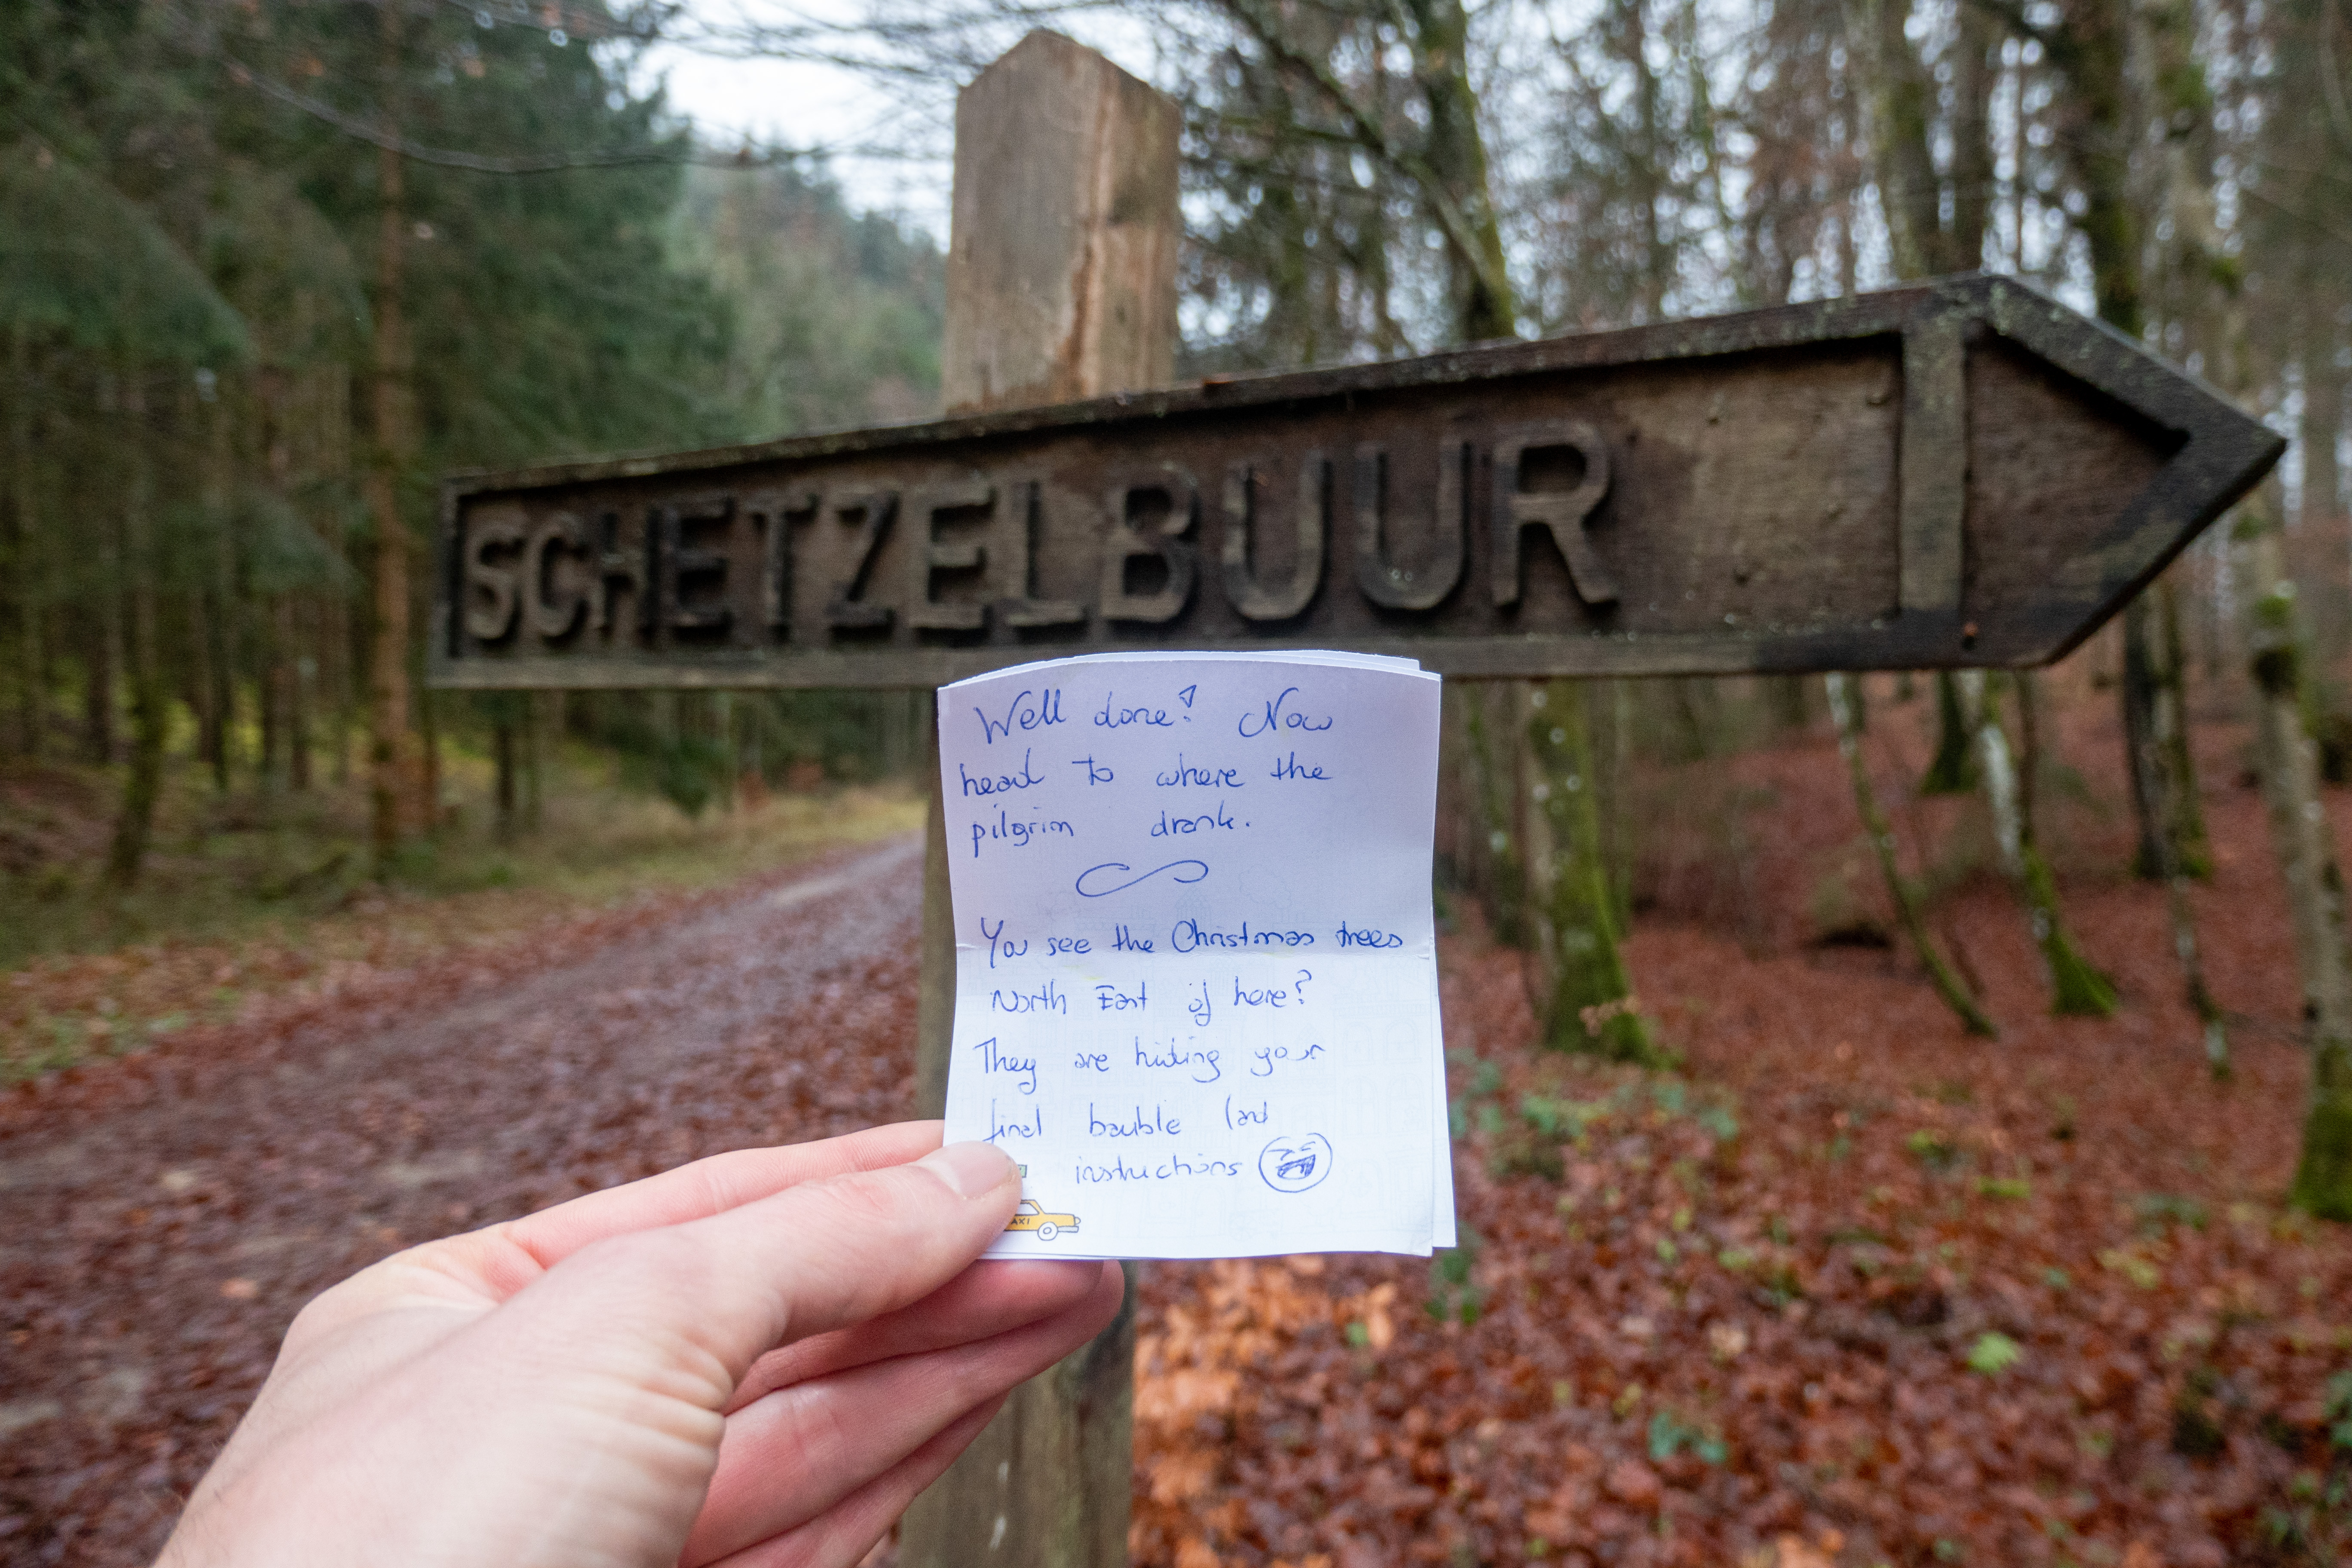 SCHETZELBUUR
Well done! Now
head to where the
pilgrim drank.
You see the Christmas trees
North East of here?
They are hiding your
final bauble (and
instructions
AXI